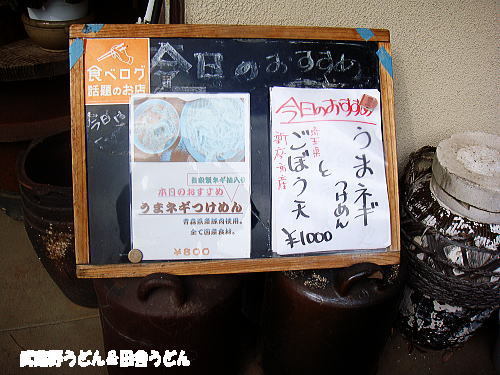 食べログ
話題のお店
今日のおすすめ
今日は
自家製ネギ油入り
本日のおすすめ
うまネギつけめん
青森県産豚肉使用。
全て国産食材。
¥800
今日のおすすめ
うまネギ
つけめん
と
埼玉県
新座市産
ごぼう天
¥1000
武蔵野うどん&田舎うどん